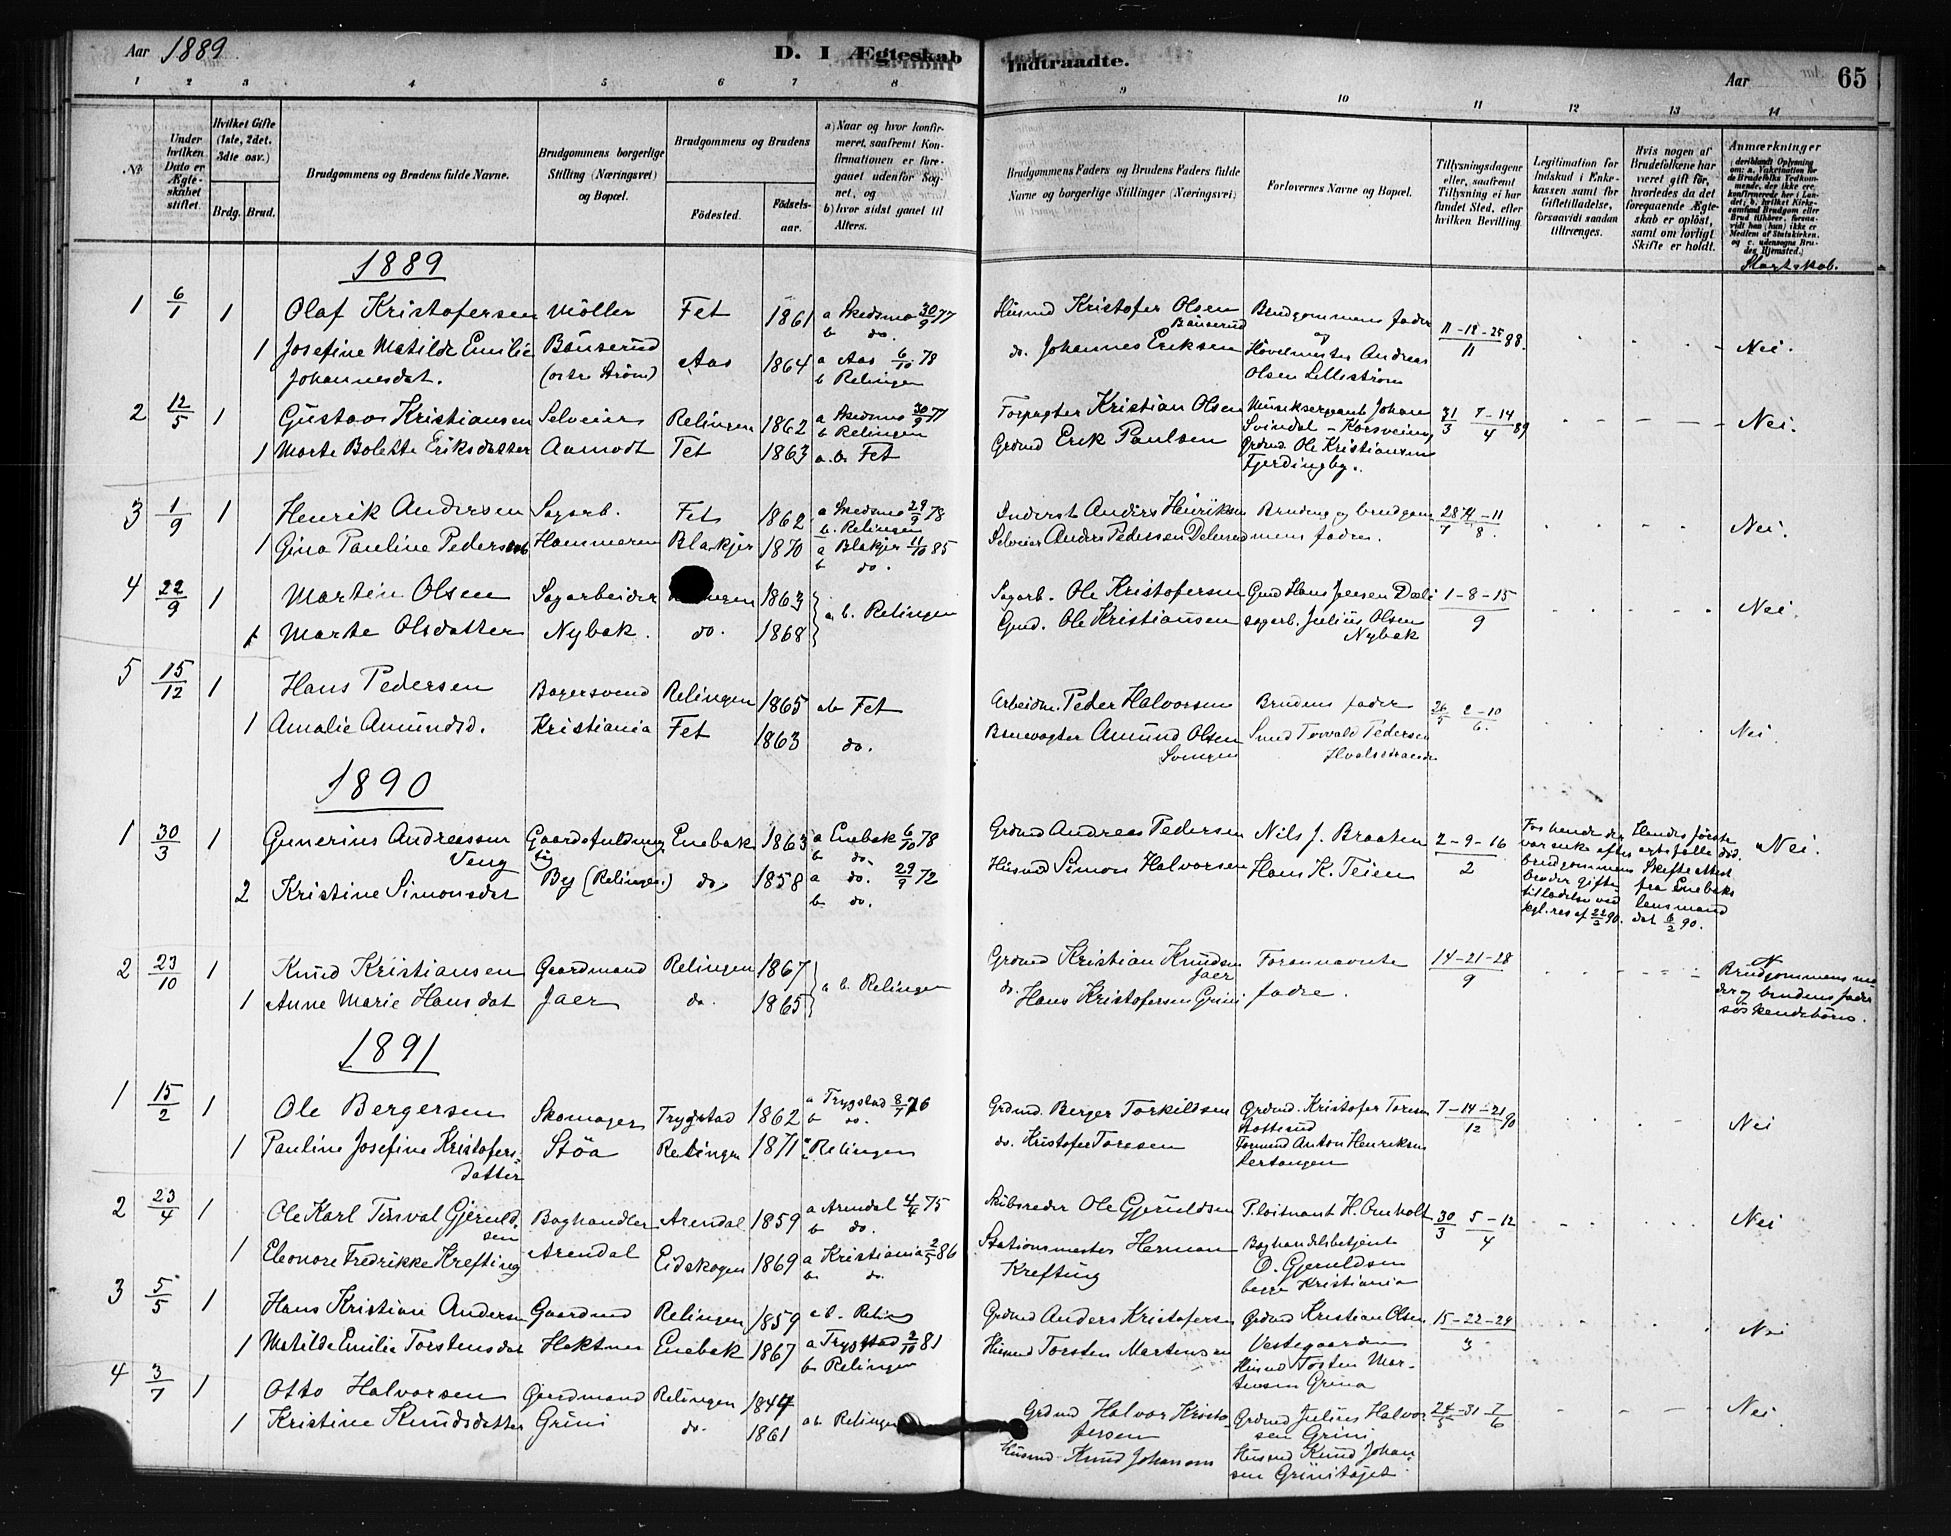 Aar 1889. D. I Ægteskab Indtraadte. Aar 65
1 2 3 4 5 6 7 8 9 10 11 12 13 14
No.
Under hvilken Dato er Ægteskabet stiftet.
Hvilket Gifte (1ste, 2det, 3die osv.)
Brdg. Brud.
Brudgommens og Brudens fulde Navne.
Brudgommens borgerlige Stilling (Næringsvei) og Bopæl.
Brudgommens og Brudens
Fødested. Fødselsaar.
a) Naar og hvor konfirmeret, saafremt Konfirmationen er foregaaet udenfor Sognet, og
b) hvor sidst gaaet til Alters.
Brudgommens Faders og Brudens Faders fulde Navne og borgerlige Stillinger (Næringsvei)
Forlovernes Navne og Bopæl.
Tillysningsdagene eller, saafremt Tillysning ei har fundet Sted, efter hvilken Bevilling.
Legitimation for Indskud i Enkekassen samt for Giftetilladelse, forsaavidt saadan tiltrænges.
Hvis nogen af Brudefolkene har været gift før, hvorledes da det foregaaende Ægteskab er opløst, samt om lovligt Skifte er holdt.
Anmærkninger
Slægtskab.
1889
1 6/1 1 Olaf Kristofersen Møller Fet 1861 a Skedsmo 30/9 77 Husmd Kristofer Olsen Brudgommens fader 11-18-25/11 88. Nei.
b do. Bånserud og
1 Josefine Matilde Emilie Bånserud Aas 1864 a Aas 6/10 78 do. Johannes Eriksen Høvelmester Andreas
Johannesdat. (østre Strøm) b Relingen Olsen Lillestrøm
2 12/5 1 Gustav Kristiansen Selveier Relingen 1862 a Skedsmo 30/9 77 Forpagter Kristian Olsen Musiksergeant Johan 31/3 7-14/4 89 Nei.
b Relingen Svindal - Korsveien,
1 Marte Bolette Eriksdatter Aamodt Fet 1863 a. b. Fet Grdmd Erik Paulsen Grdmd. Ole Kristiansen
Fjerdingby.
3 1/9 1 Henrik Andersen Sagarb. Fet 1862 a Skedsmo 29/9 78 Inderst Anders Henriksen Brudens og brudgom- 28/7 4-11/8. Nei.
b. Relingen
1 Gina Pauline Pedersen Hammeren Blakjer 1870 a Blakjer 11/10 85 Selveier Anders Pedersen mens fadre.
b do.
4 22/9 1 Martin Olsen Sagarbeider 1863 a. b. Relingen Sagarb. Ole Kristofersen Gmd Hans Jensen Dæli 1-8-15/9 Nei.
1 Marte Olsdatter Nybak. do. 1868 Gmd. Ole Kristiansen sagarb. Julius Olsen
Nybak
5 15/12 1 Hans Pedersen Bagersvend Relingen 1865 ab Fet Arbeidm. Peder Halvorsen Brudens fader 26/5 2-10/6. Nei.
1 Amalie Amundsd. Kristiania Fet 1863 do. Banevogter Amund Olsen Smed Torvald Pedersen
Svingen Hvalsstranden
1890
1 30/3 1 Gunerius Andreassen Gaardsfuldmægtig Enebak 1863 a Enebak 6/10 78 Grdmd Andreas Pedersen Nils J. Braaten 2-9-16/2 Nei.
Veng b do.
2 Kristine Simonsdat By (Relingen) do. 1858 a do. 29/9 72 Husmd Simon Halvorsen Hans K. Teien
b do.
var enke efter
brudgommens
broder
tilladelse ved
kgl. res af 22/3 90.
Hendes første
ægtefælle død.
Skifte attest
fra Enebaks
lensmand
dat 6/2 90.
2 23/10 1 Knud Kristiansen Gaardmand Relingen 1867 a b. Relingen Grdmd Kristian Knudsen Forannævnte 14-21-28/9
Jaer
1 Anne Marie Hansdat Jaer do. 1865 do. Hans Kristofersen Grini fadre.
Brudgommens mo-
der og brudens fader
søskendebørn.
1891
1 15/2 1 Ole Bergersen Skomager Trygstad 1862 a Trygstad 8/7 76 Grdmd. Berger Torkildsen Grdmd. Kristofer Toresen 7-14-21/12 90 Nei
b do.
1 Pauline Josefine Kristofers- Støa Relingen 1871 Relingen do. Kristofer Toresen Anton Henriksen
datter Tertangen
2 23/4 1 Ole Karl Torval Gjeruld- Boghandler Arendal 1859 a Arendal 4/4 75 Skibsreder Ole Gjeruldsen P.løitnant H. Omholt 30/3 5-12/4 Nei
sen b do.
1 Eleonore Fredrikke Krefting Arendal Eidskogen 1869 a Kristiania 2/5 86 Stationsmester Herman Boghandelsbetjent
b do. Krefting O. Gjeruldsen
begge Kristiania
3 5/5 1 Hans Kristian Andersen Gaardmd Relingen 1859 a b. Relin Grdmd Anders Kristofersen Grdmd Kristian Olsen 15-22-29/3 Nei
1 Matilde Emilie Torstensdat Hektner Enebak 1867 a Trygstad 2/10 81 Husmd Torsten Martinsen Vestegaarden
b Relingen Husmd Tosten Mar-
tinsen Grina
4 3/7 1 Otto Halvorsen Gaardmand Relingen 1844 a b Relingen Grdmd Halvor Kristo- Grdmd Julius Halvor- 24/5-31-7/6 Nei
fersen sen Grini
1 Kristine Knudsdatter Grini do. 1861 Husmd Knud Johansen Husmd Knud Johan-
sen Grinitajet